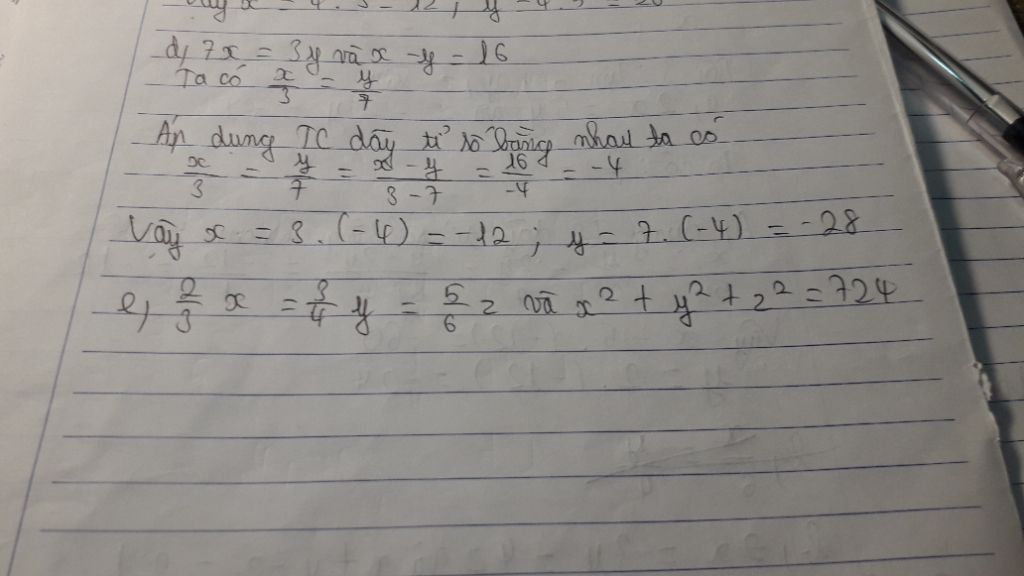 Vậy x = 4 . 3 = 12 ; y = 4 . 5 = 20
d, 7x = 3y và x - y = 16
Ta có x/3 = y/7
Áp dụng TC dãy tỉ số bằng nhau ta có
x/3 = y/7 = x - y/3 - 7 = 16/-4 = -4
Vậy x = 3 . (-4) = -12 ; y = 7. (-4) = -28
e, 2/3 x = 3/4 y = 5/6 z và x² + y² + z² = 724